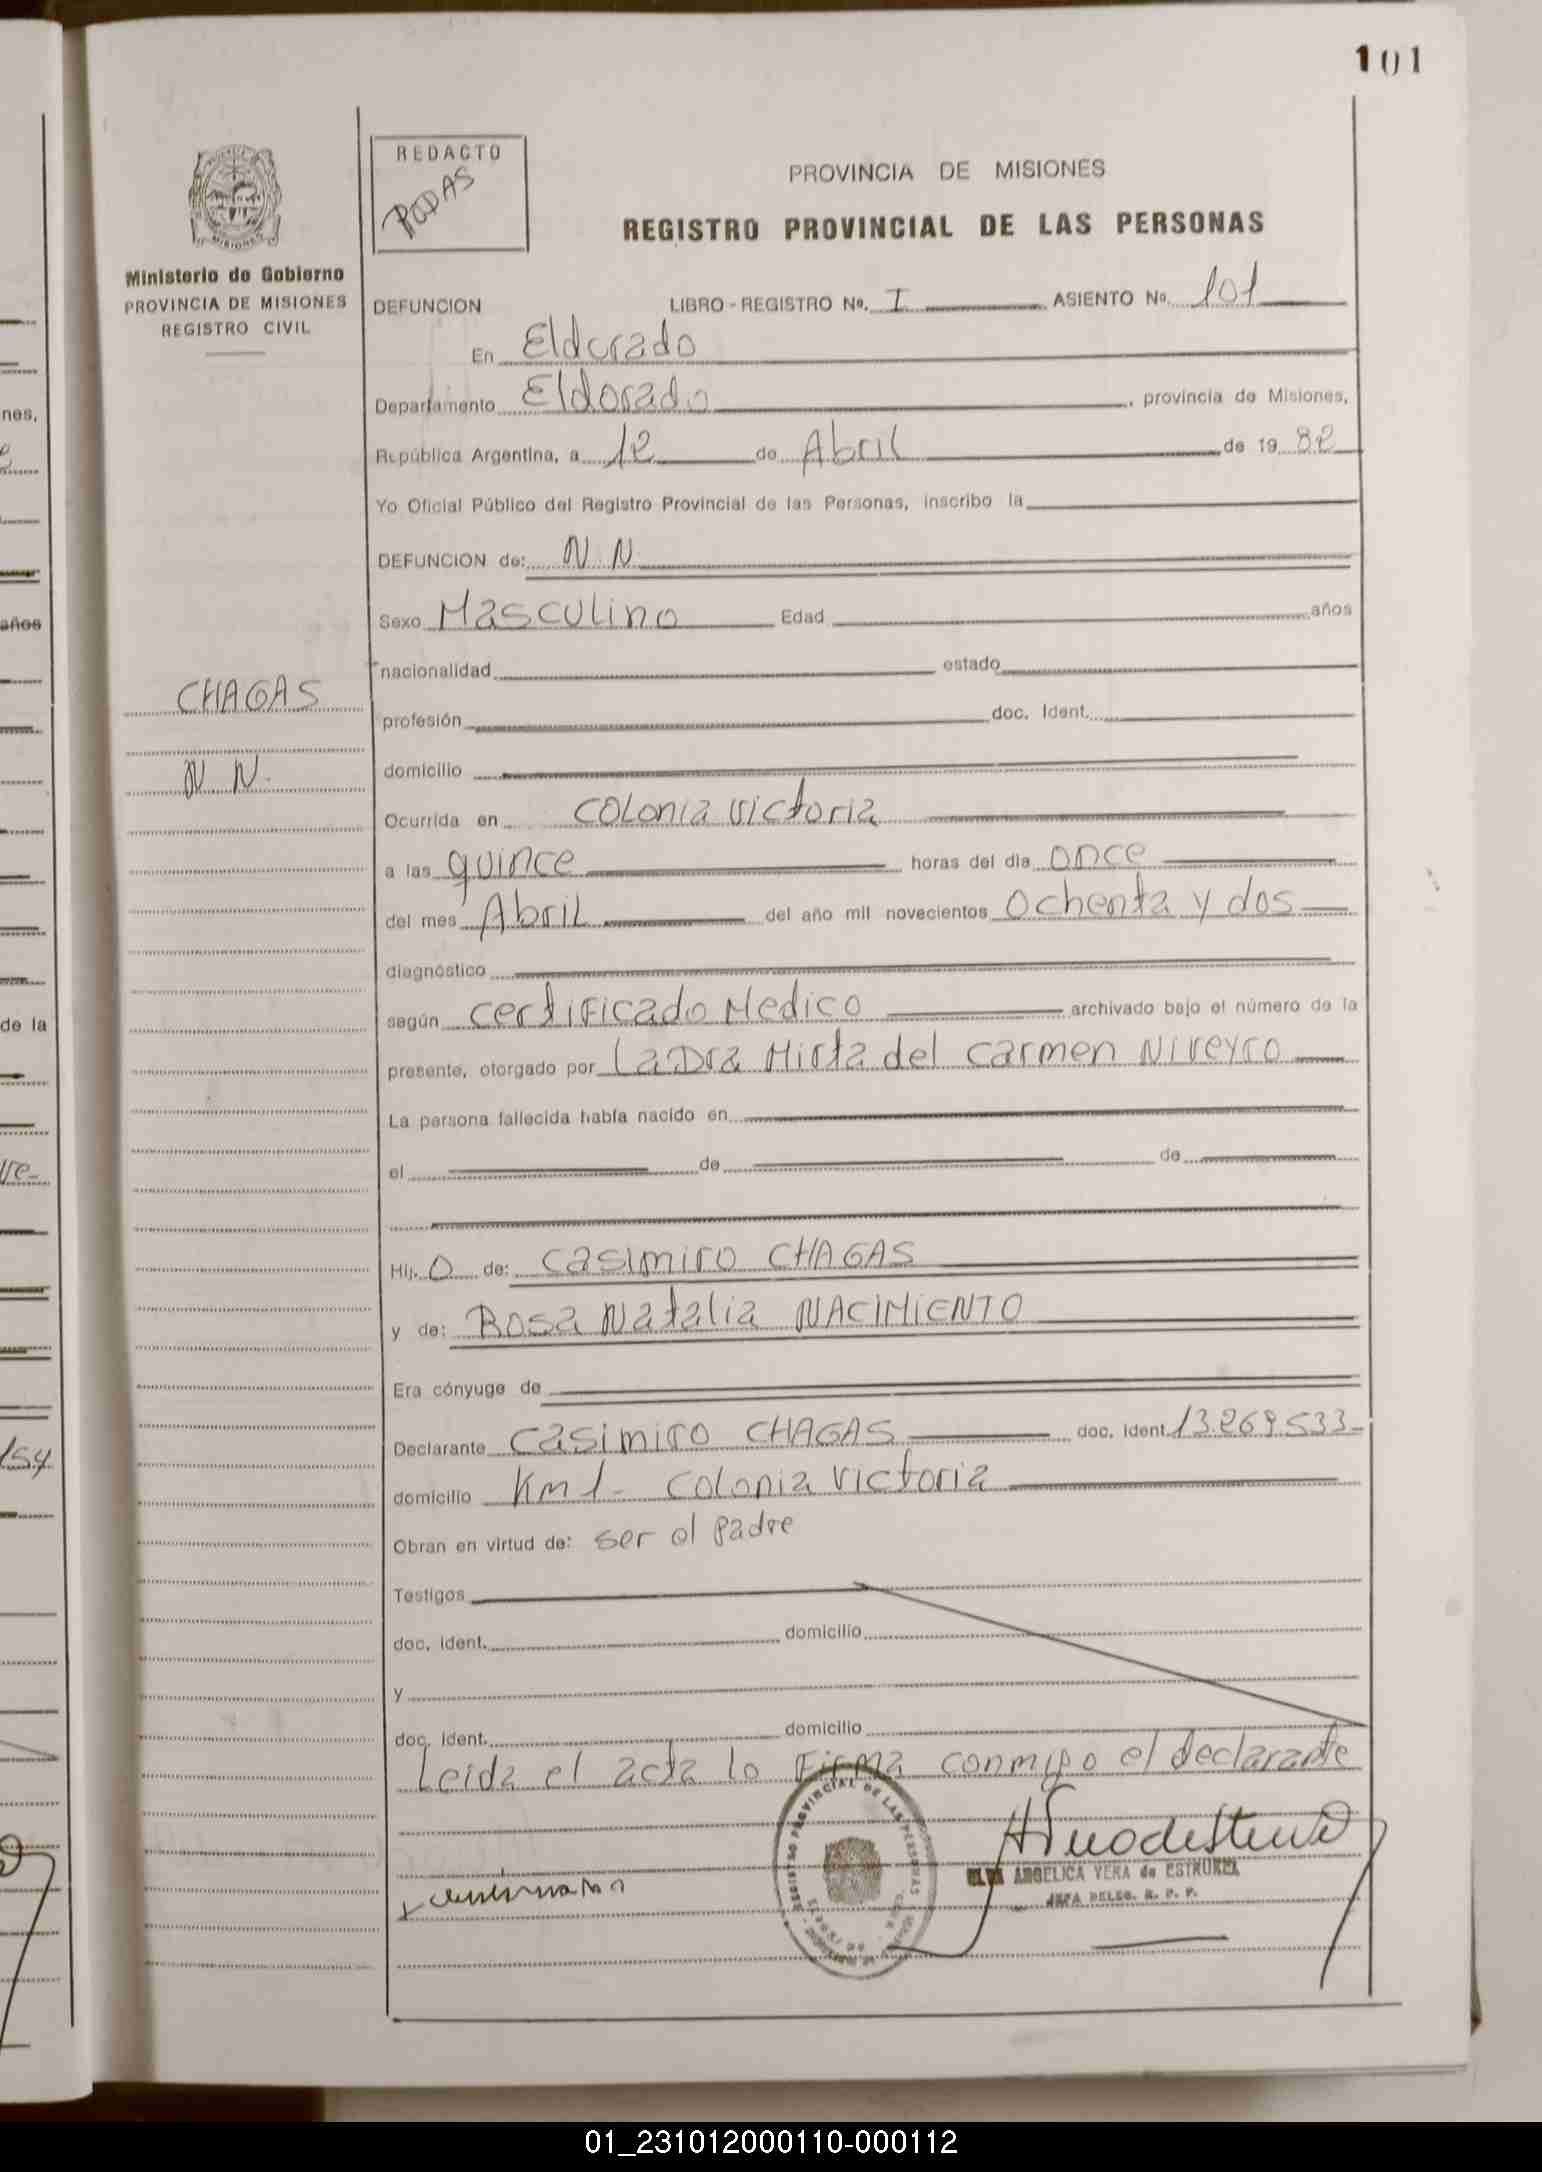 101
REDACTO
RODAS
PROVINCIA DE MISIONES
REGISTRO PROVINCIAL DE LAS PERSONAS
MISIONES
Ministerio de Gobierno
PROVINCIA DE MISIONES
REGISTRO CIVIL
DEFUNCION LIBRO - REGISTRO No. I ASIENTO No. 101
En Eldorado
Departamento Eldorado, provincia de Misiones,
República Argentina, a 12 de Abril de 19 82
Yo Oficial Público del Registro Provincial de las Personas, inscribo la
DEFUNCION de: N N
Sexo Masculino Edad años
nacionalidad estado
CHAGAS
N N.
profesión doc. Ident.
domicilio
Ocurrida en colonia victoria
a las quince horas del día once
del mes Abril del año mil novecientos Ochenta y dos
diagnóstico
según certificado Medico archivado bajo el número de la
presente, otorgado por La Dra Mirta del carmen Nireyro
La persona fallecida había nacido en
el de de
Hij. O de: casimiro CHAGAS
y de: Rosa Natalia NACIMIENTO
Era cónyuge de
Declarante casimiro CHAGAS doc. ident. 13.269.533
domicilio Km 1 - colonia victoria
Obran en virtud de: ser el padre
Testigos
doc. ident. domicilio
y
doc. ident. domicilio
Leida el acta lo Firma conmigo el declarante
REGISTRO PROVINCIAL DE LAS PERSONAS
ANGELICA VERA de ESTRUKEL
JEFA DELEG. R. P. P.
nes,
años
de la
01_231012000110-000112